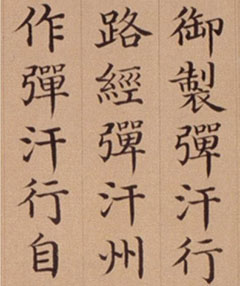 御製彈汗行
路經彈汗州
作彈汗行自